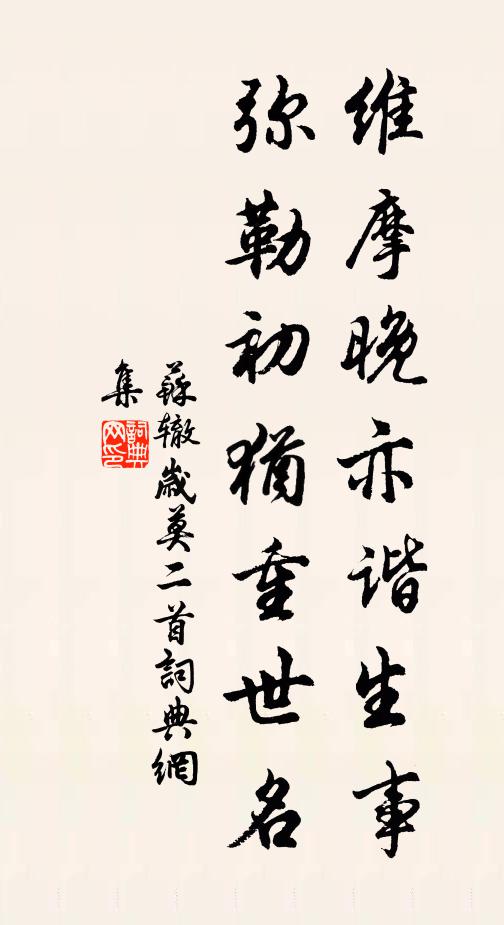 维摩晚亦谐生事
弥勒初犹重世名
蘇辙歲莫二首詞典網
集
詞典
网印